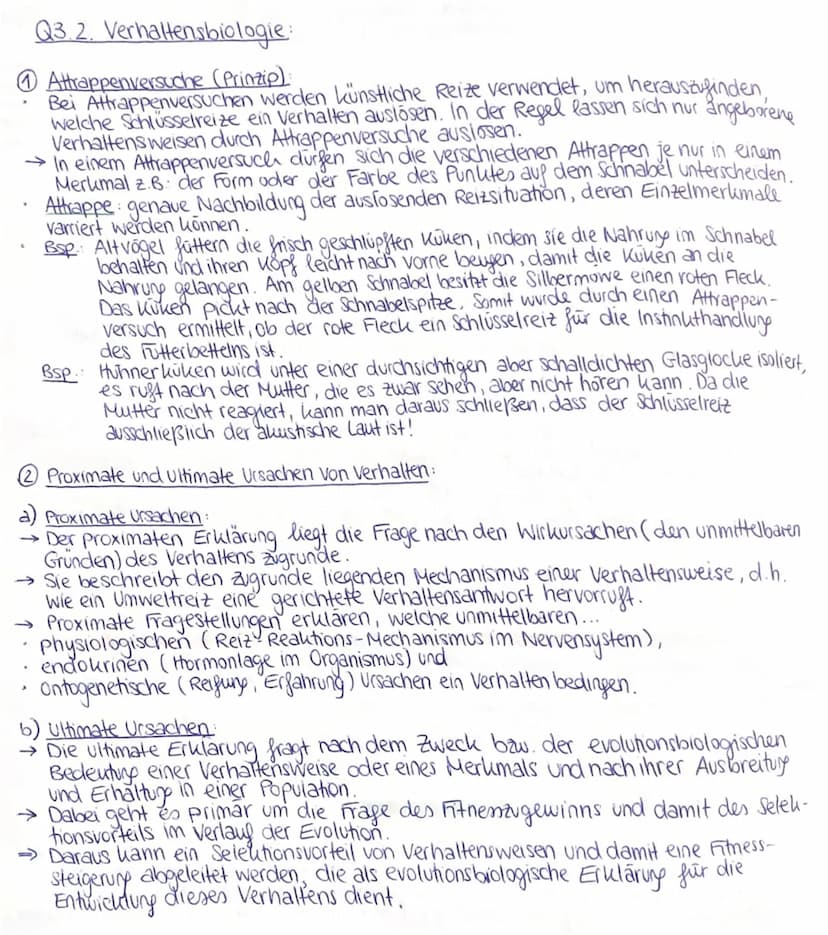 Q3.2. Verhaltensbiologie:
① Attrappenversuche (Prinzip):
· Bei Attrappenversuchen werden künstliche Reize verwendet, um herauszufinden,
welche Schlüsselreize ein Verhalten auslösen. In der Regel lassen sich nur angeborene
Verhaltensweisen durch Attrappenversuche auslösen.
→ In einem Attrappenversuch dürfen sich die verschiedenen Attrappen je nur in einem
Merkmal z.B. der Form oder der Farbe des Punktes auf dem Schnabel unterscheiden.
· Attrappe: genaue Nachbildung der auslösenden Reizsituation, deren Einzelmerkmale
variiert werden können.
· Bsp.: Altvögel füttern die frisch geschlüpften Küken, indem sie die Nahrung im Schnabel
behalten und ihren Kopf leicht nach vorne beugen, damit die Küken an die
Nahrung gelangen. Am gelben Schnabel besitzt die Silbermöwe einen roten Fleck.
Das Küken pickt nach der Schnabelspitze. Somit wurde durch einen Attrappen-
versuch ermittelt, ob der rote Fleck ein Schlüsselreiz für die Instinkthandlung
des Futterbettelns ist.
Bsp.: Hühnerküken wird unter einer durchsichtigen aber schalldichten Glasglocke isoliert,
es ruft nach der Mutter, die es zwar sehen, aber nicht hören kann. Da die
Mutter nicht reagiert, kann man daraus schließen, dass der Schlüsselreiz
ausschließlich der akustische Laut ist!
② Proximate und Ultimate Ursachen von Verhalten:
a) Proximate Ursachen:
→ Der proximaten Erklärung liegt die Frage nach den Wirkursachen (den unmittelbaren
Gründen) des Verhaltens zugrunde.
→ Sie beschreibt den zugrunde liegenden Mechanismus einer Verhaltensweise, d.h.
wie ein Umweltreiz eine gerichtete Verhaltensantwort hervorruft.
→ Proximate Fragestellungen erklären, welche unmittelbaren...
· physiologischen (Reiz-Reaktions-Mechanismus im Nervensystem),
· endokrinen (Hormonlage im Organismus) und
· ontogenetische (Reifung, Erfahrung) Ursachen ein Verhalten bedingen.
b) Ultimate Ursachen:
→ Die ultimate Erklärung fragt nach dem Zweck bzw. der evolutionsbiologischen
Bedeutung einer Verhaltensweise oder eines Merkmals und nach ihrer Ausbreitung
und Erhaltung in einer Population.
→ Dabei geht es primär um die Frage des Fitnesszugewinns und damit des Selek-
tionsvorteils im Verlauf der Evolution.
⇒ Daraus kann ein Selektionsvorteil von Verhaltensweisen und damit eine Fitness-
steigerung abgeleitet werden, die als evolutionsbiologische Erklärung für die
Entwicklung dieses Verhaltens dient.